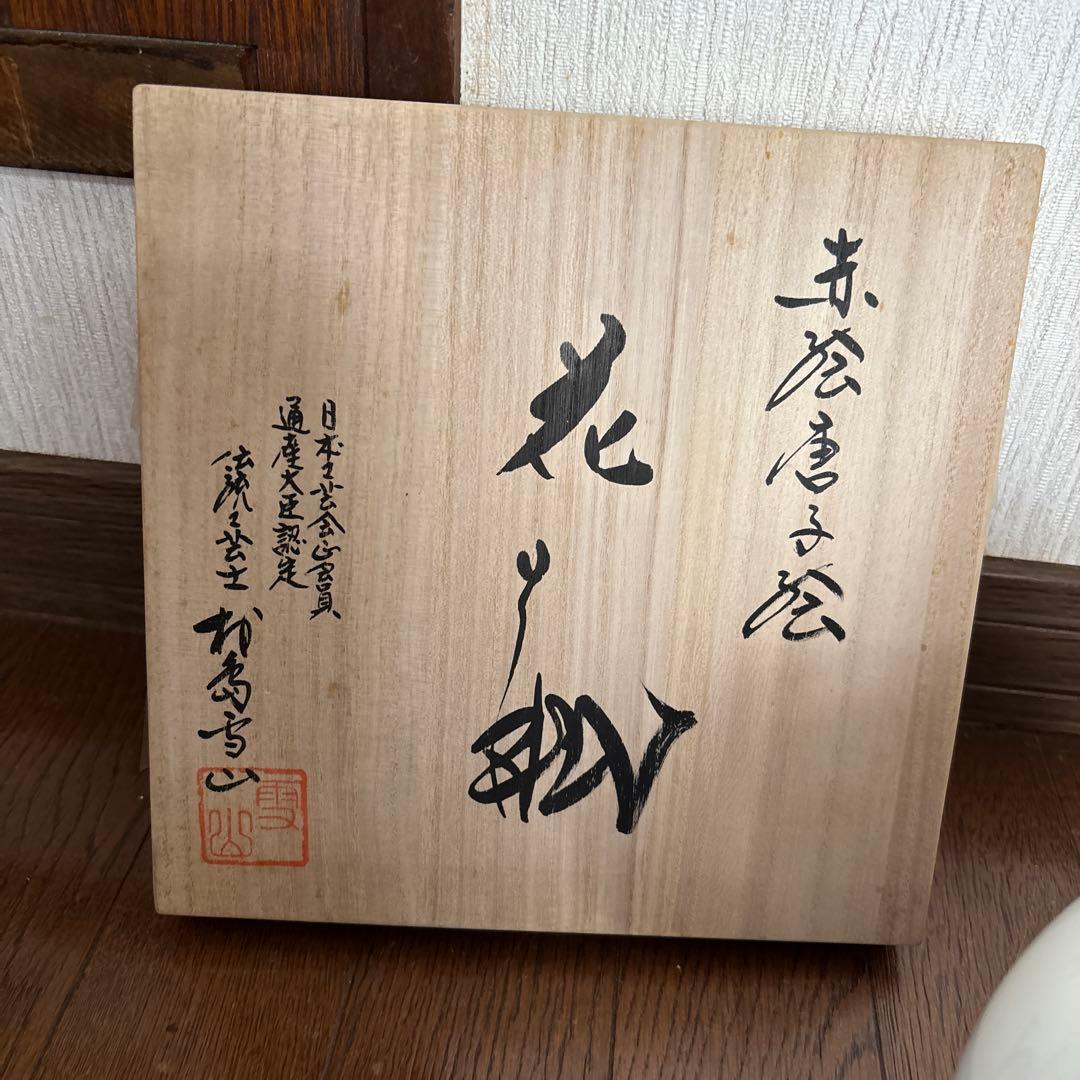 赤絵唐子絵
花瓶
日本工芸会正会員
通産大臣認定
伝統工芸士 村島雪山
雪山